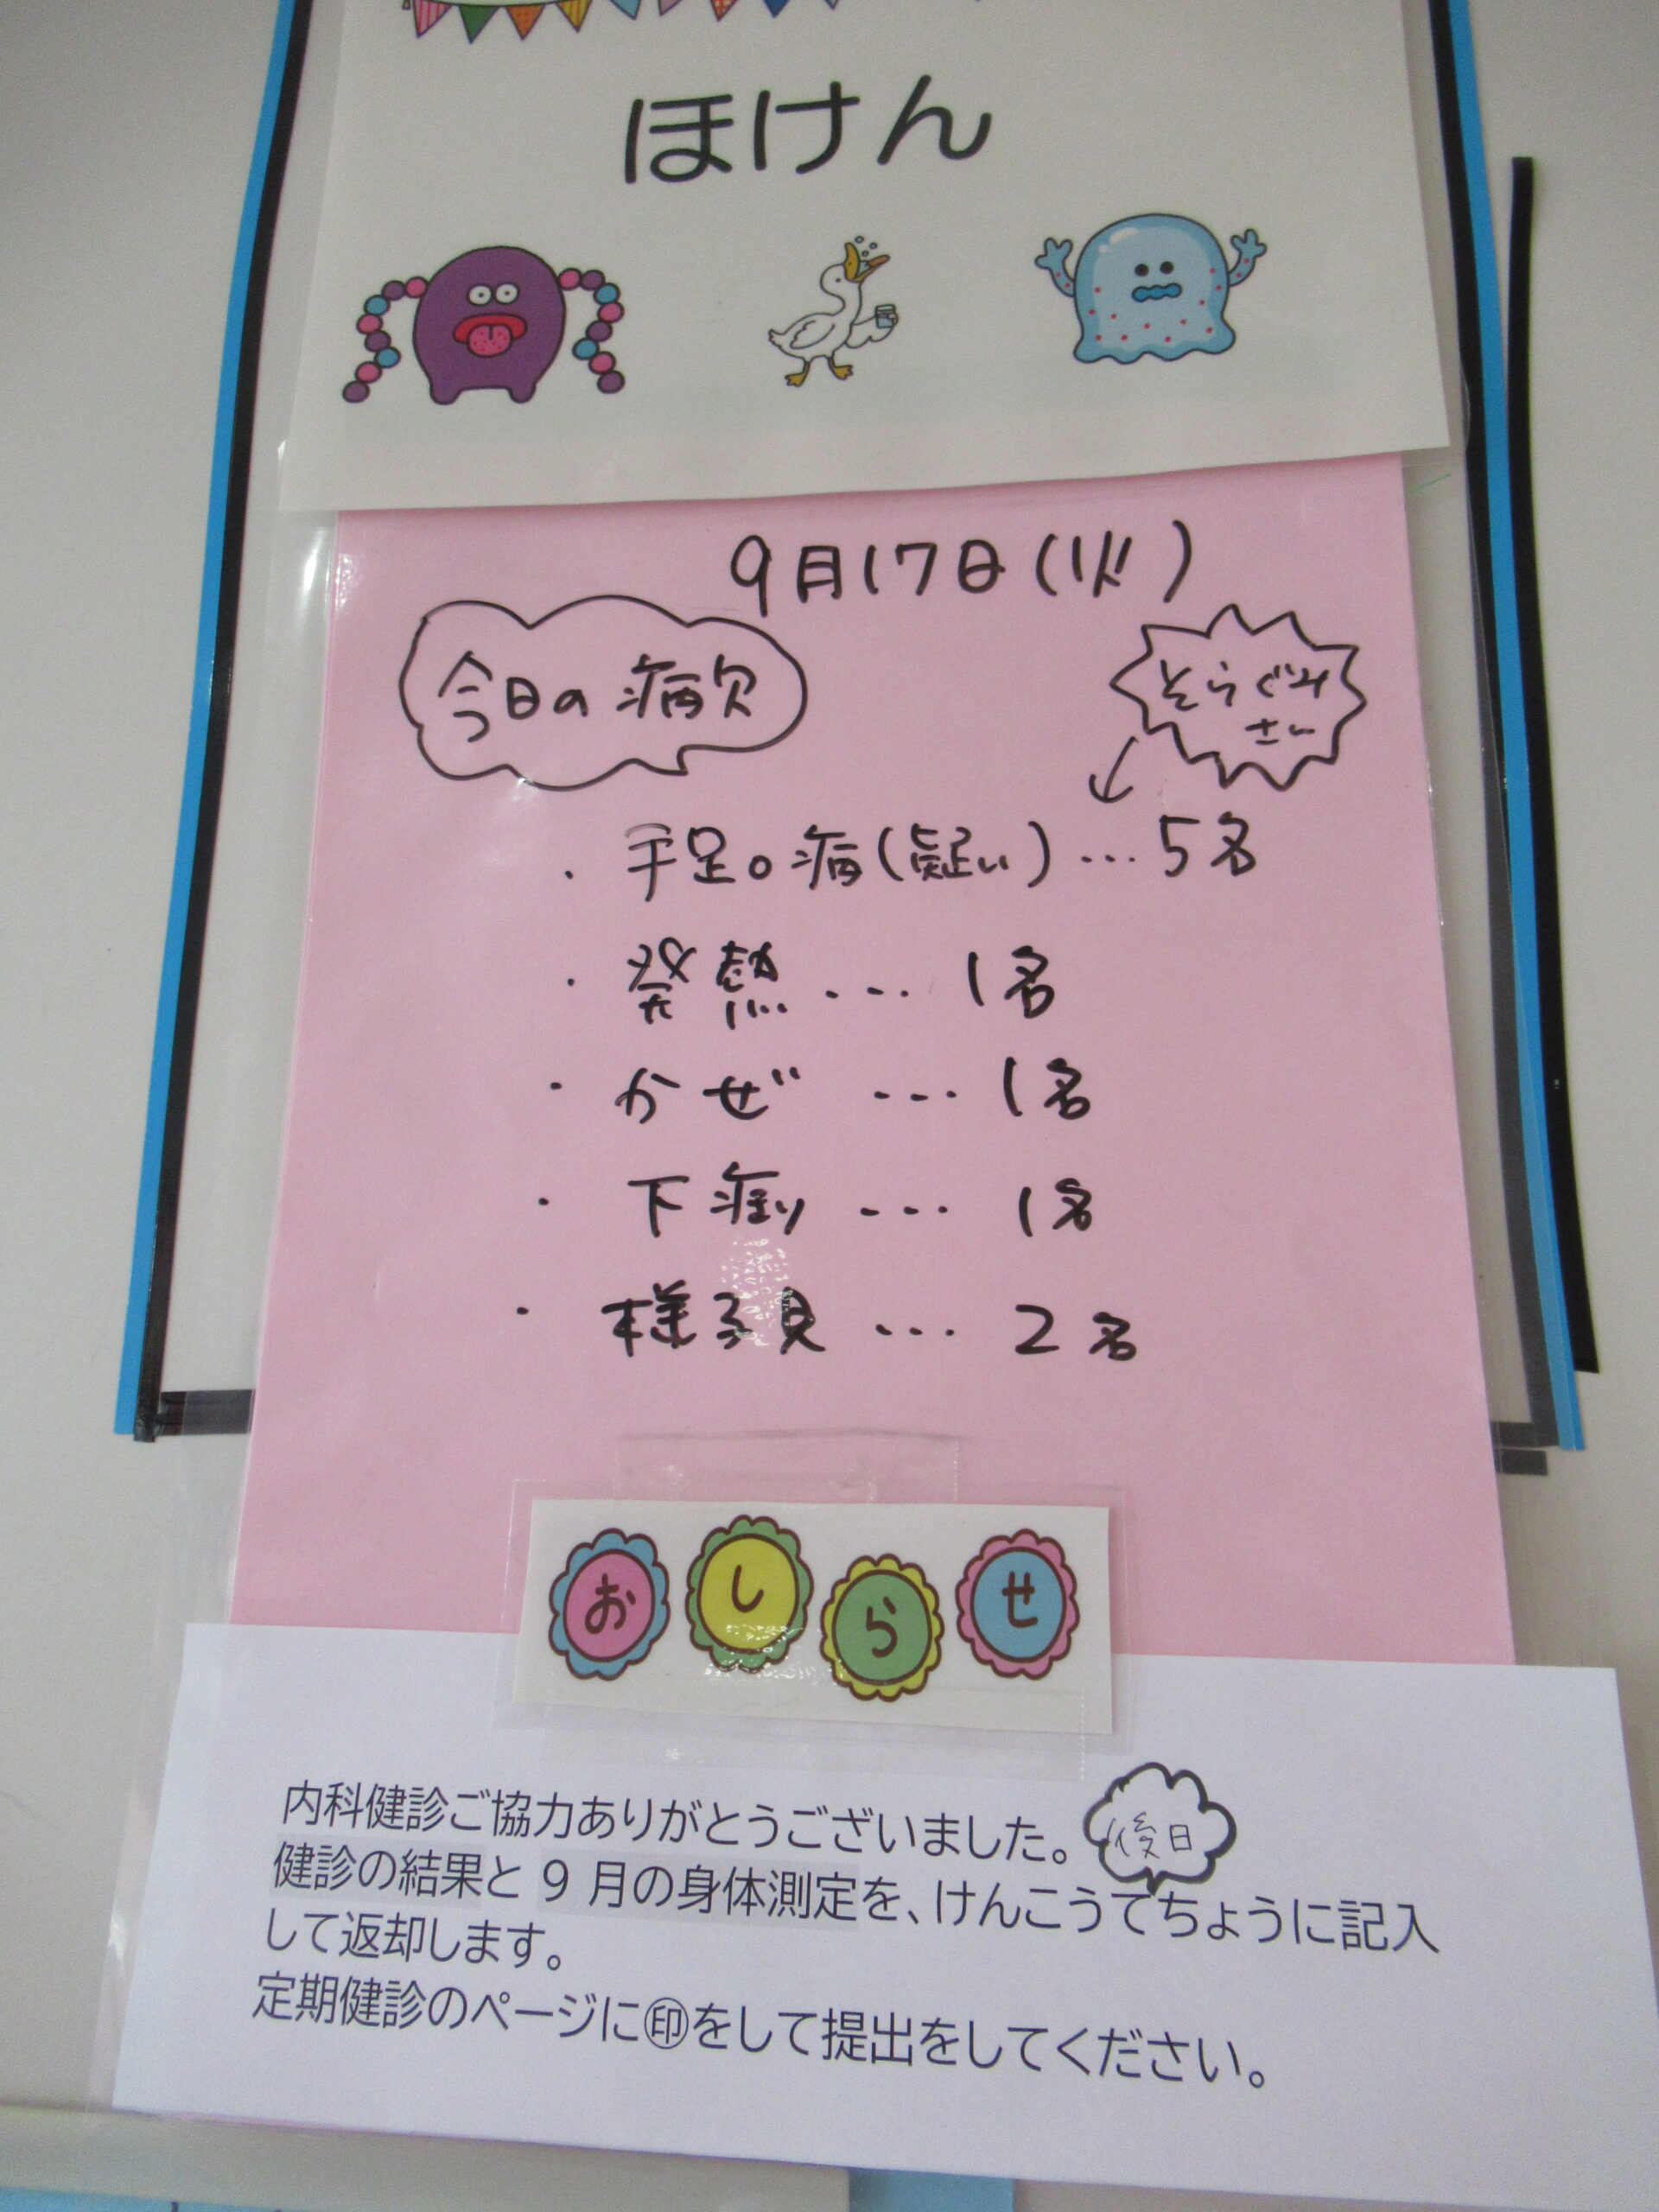 ほけん
9月17日(火)
今日の病欠
ぞうぐみ
さん
・手足口病(疑い)…5名
・発熱…1名
・かぜ…1名
・下痢…1名
・様子見…2名
おしらせ
内科健診ご協力ありがとうございました。
後日
健診の結果と9月の身体測定を、けんこうてちょうに記入
して返却します。
定期健診のページに㊞をして提出をしてください。